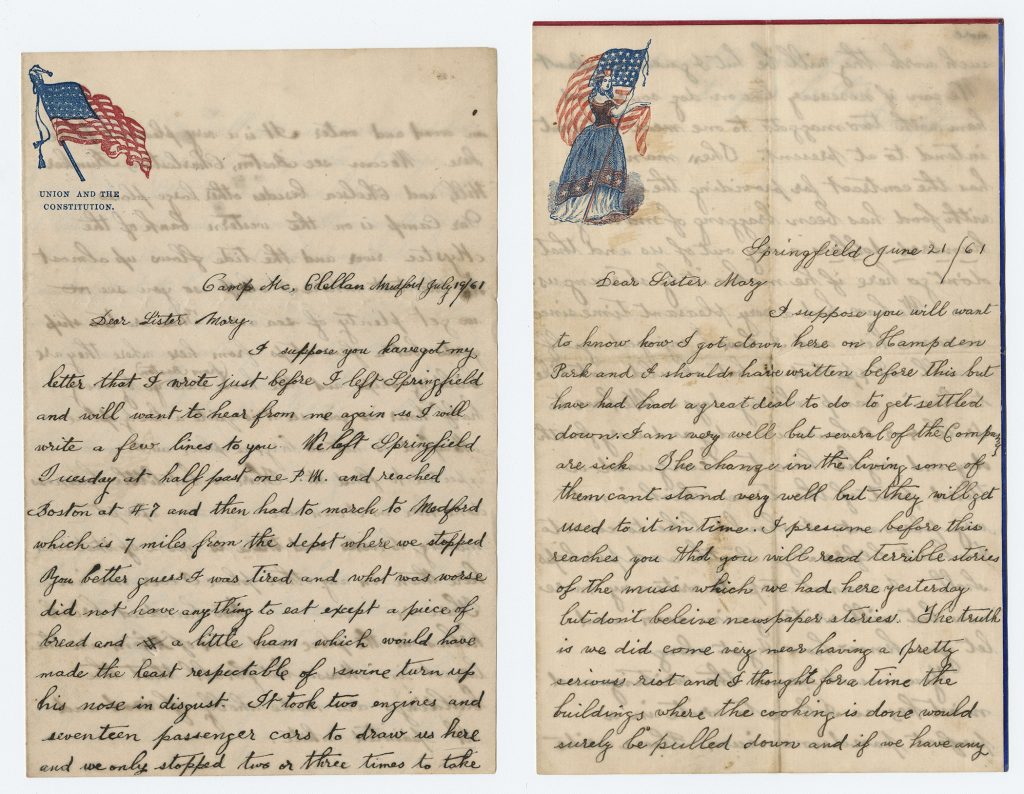 UNION AND THE
CONSTITUTION.
Camp Mc, Clellan Medford July 19/61
Dear Sister Mary
I suppose you have got my
letter that I wrote just before I left Springfield
and will want to hear from me again so I will
write a few lines to you We left Springfield
Tuesday at half past one P.M. and reached
Boston at 7 and then had to march to Medford
which is 7 miles from the depot where we stopped
You better guess I was tired and what was worse
did not have anything to eat except a piece of
bread and a little ham which would have
made the least respectable of swine turn up
his nose in disgust. It took two engines and
seventeen passenger cars to draw us here
and we only stopped two or three times to take
Springfield June 21/61
Dear Sister Mary
I suppose you will want
to know how I got down here on Hampden
Park and I should have written before this but
have had had a great deal to do to get settled
down. I am very well but several of the Company
are sick The change in the living some of
them cant stand very well but they will get
used to it in time. I presume before this
reaches you that you will read terrible stories
of the muss which we had here yesterday
but don't beleive newspaper stories. The truth
is we did come very near having a pretty
serious riot and I thought for a time the
buildings where the cooking is done would
surely be pulled down and if we have any